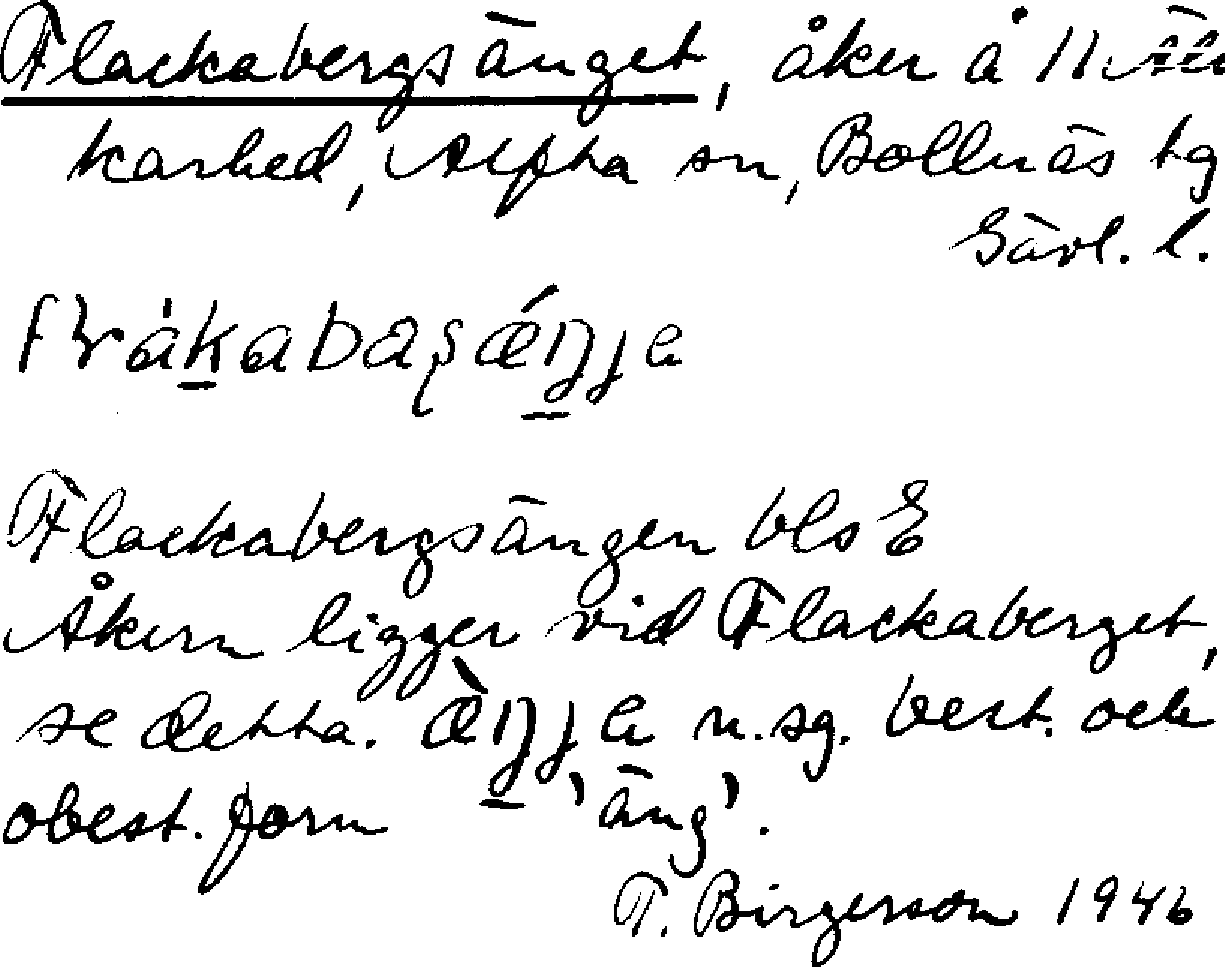 Flackabergsänget, åker å 11
karhed, Alfta sn, Bollnäs tg
Gävl. l.
Flackabergsängen bls E
Åkern ligger vid Flackaberget,
se detta. æ̀ŋ̱ɟe n.sg. best. och
obest. form 'äng'.
T. Birgerson 1946